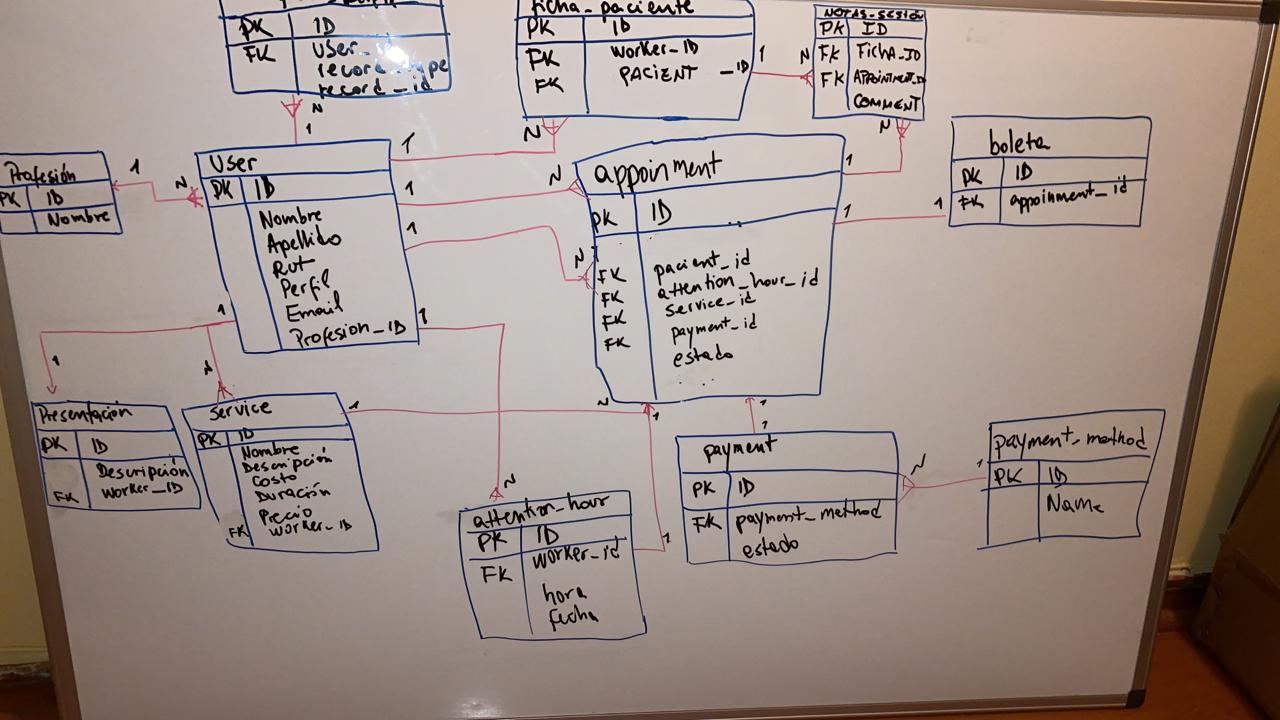 PK ID
FK User_id
record_type
record_id
ficha_paciente
PK ID
FK Worker_ID
FK PACIENT_ID
NOTAS_SESIÓN
PK ID
FK FICHA_ID
FK APPOINTMENT_ID
COMMENT
N
1
N
1
N
1
N
1
1
N
Profesión
PK ID
Nombre
1
N
User
PK ID
Nombre
Apellido
Rut
Perfil
Email
Profesion_ID
1
N
1
N
appoinment
PK ID
FK pacient_id
FK attention_hour_id
FK service_id
FK payment_id
estado
boleta
PK ID
FK appoinment_id
1
1
1
1
N
1
Presentación
PK ID
Descripción
FK Worker_ID
Service
PK ID
Nombre
Descripción
Costo
Duración
Precio
FK Worker_ID
1
N
N
attention_hour
PK ID
FK Worker_id
hora
fecha
1
1
1
payment
PK ID
FK payment_method
estado
N
1
payment_method
PK ID
Name